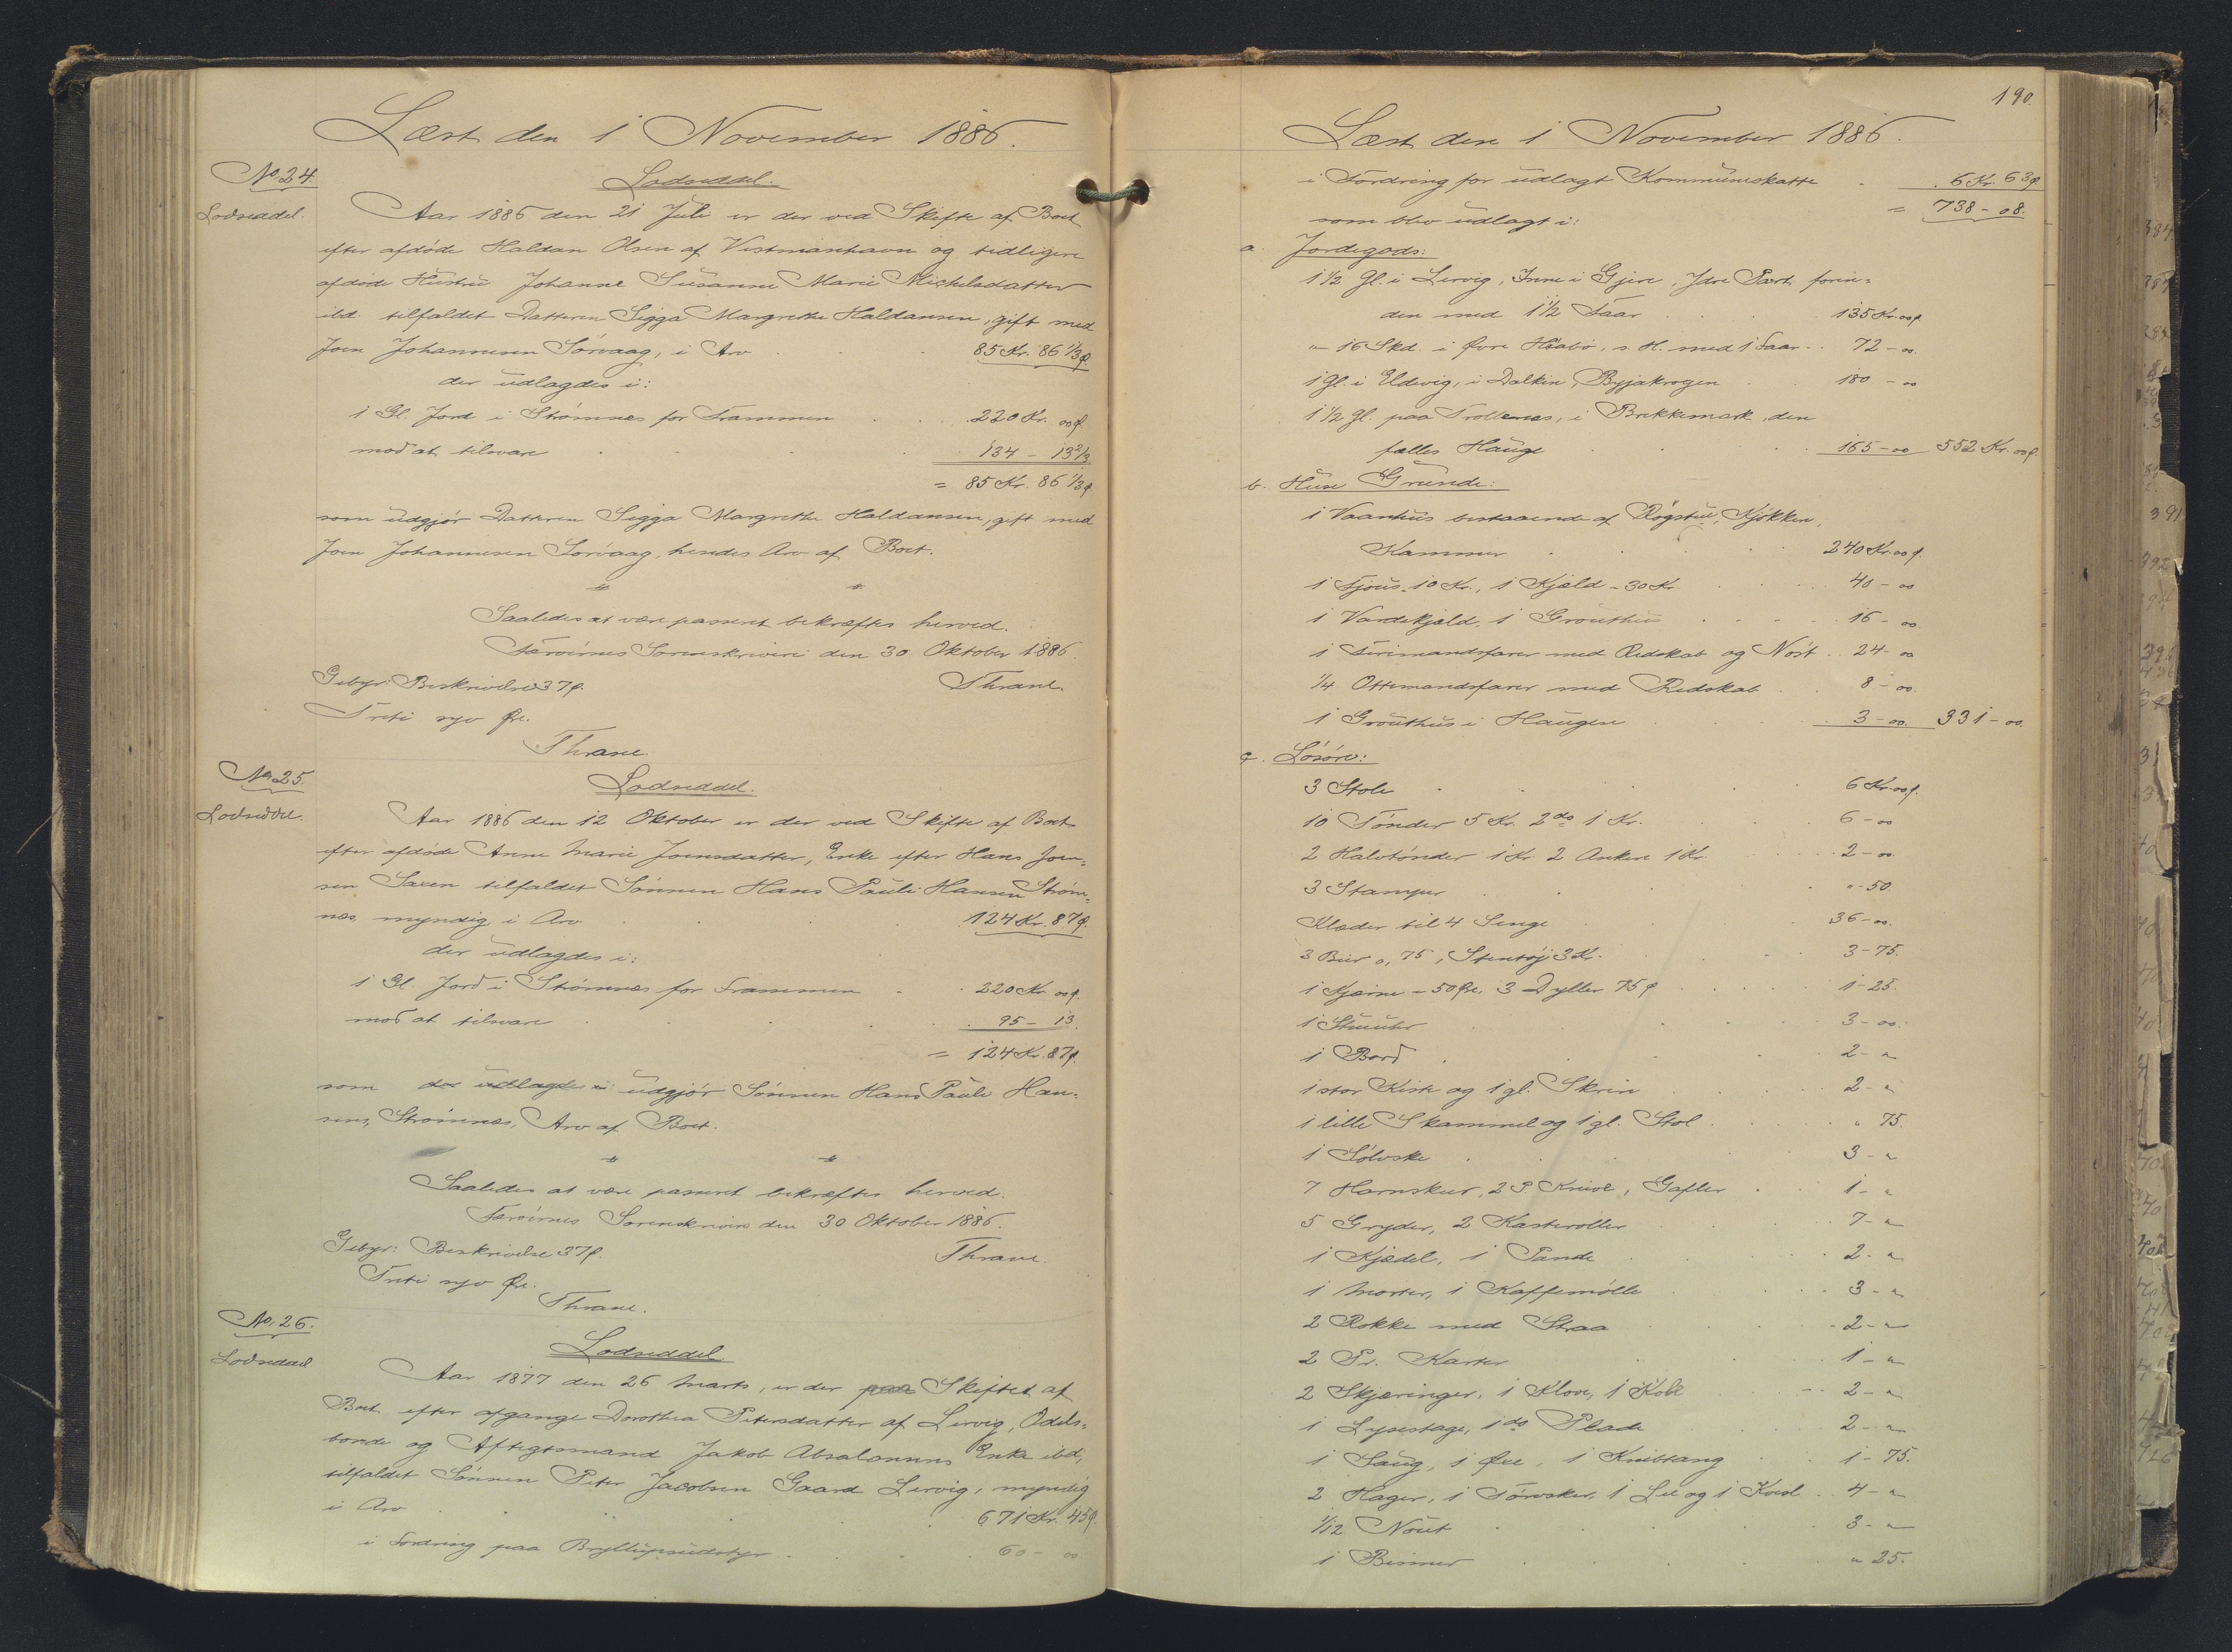 Læst den 1 November 1886.
No 24.
Lodseddel.
Lodseddel.
Aar 1886 den 21 Juli er der ved Skifte af Boet
efter afdøde Haldan Olsen af Vestmanhavn og tidligere
afdøde Hustru Johanne Susanne Marie Michelsdatter
ibd. tilfaldet Datteren Sigga Margrethe Haldansen, gift med
Joen Johannesen Sørvaag, i Arv 85 Kr. 86 1/3 ø
der udlagdes i:
1 Gl. Jord i Strømnæs for Frammen 220 Kr. 00 ø.
mod at tilsvare 134 - 13 2/3
= 85 Kr. 86 1/3 ø
som udgjør Datteren Sigga Margrethe Haldansen, gift med
Joen Johannesen Sørvaag, hendes Arv af Boet.
Saaledes at være passeret bekræftes herved.
Færøernes Sorenskriveri den 30 Oktober 1886.
Gebyr: Beskrivelse 37 ø.
Thrane.
Treti syv Øre.
Thrane.
No 25.
Lodseddel.
Lodseddel.
Aar 1886 den 12 Oktober er der ved Skifte af Boet
efter afdøde Anne Marie Joensdatter, Enke efter Hans Joen-
sen Saxen tilfaldet Sønnen Hans Pauli Hansen Strøm-
næs, myndig i Arv 124 Kr. 87 ø.
der udlagdes i:
1 Gl. Jord i Strømnæs for Frammen 220 Kr. 00 ø.
mod at tilsvare 95 - 13.
= 124 Kr. 87 ø.
som der udlagdes i: udgjør Sønnen Hans Pauli Han-
sens, Strømnæs, Arv af Boet.
Saaledes at være passeret bekræftes herved.
Færøernes Sorenskriveri den 30 Oktober 1886.
Gebyr: Beskrivelse 37 ø.
Thrane.
Treti syv Øre.
Thrane.
No 26.
Lodseddel
Lodseddel.
Aar 1877 den 26 Marts, er der paa Skiftet af
Boet efter afgangne Dorothea Petersdatter af Lervig, Odels-
bonde og Aftægtsmand Jakob Absalonsens Enke ibd,
tilfaldet Sønnen Peter Jacobsen Gaard Lervig, myndig
i Arv 671 Kr. 45 ø.
i Fordring paa Bryllupsudstyr 60 - 00
190.
Læst den 1 November 1886.
i Fordring for udlagt Kommuneskatte 6 Kr. 63 ø
= 738 - 08.
som blev udlagt i:
a. Jordegods:
1 1/2 Gl. i Lervig, Inne i Gjere, Ydre Part, forin-
den med 1 1/2 Faar 135 Kr. 00 ø.
" 16 Skd. i Øvre Haabø, s. H. med 1 Faar 72 - 00.
1 Gl. i Eldevig, i Dalkin, Byjakrogen 180 - 00
1 1/2 Gl. paa Trollenæs, i Brekkemark, den
fælles Hauge 165 - 00 552 Kr. 00 ø.
b. Huse Grunde:
1 Vaanhus bestaaende af Røgstue, Kjøkken,
Kammer 240 Kr. 00 ø.
1 Fjøus 10 Kr., 1 Kjæld - 30 Kr. 40 - 00
1 Vardekjæld, 1 Grouthus 16 - 00
1 Firimandsfarer med Redskab og Nøst 24 - 00
1/4 Ottemandsfarer med Redskab 8 - 00.
1 Grouthus i Haugen 3 - 00. 331 - 00.
c. Løsøre:
3 Stole 6 Kr. 00 ø.
10 Tønder 5 Kr. 2 do 1 Kr. 6 - 00
2 Halvtønder 1 Kr. 2 Ankere 1 Kr. 2 - 00
3 Stamper " - 50.
Klæder til 4 Senge 36 - 00.
3 0,75, Stentøj 3 Kr. 3 - 75.
1 Kjærne - 50 Øre, 3 Dyller 75 ø 1 - 25.
1 Stueuhr 3 - 00.
1 Bord 2 - "
1 stor Kiste og 1 gl. Skrin 2 - "
1 lille Skammel og 1 gl. Stol " 75.
1 Sølvske 3 - "
7 Hornskeer, 2 P. Knive, Gafler 1 - "
5 Gryder, 2 Kasteroller 7 - "
1 Kjedel, 1 Pande 2 - "
1 Morter, 1 Kaffemølle 3 - "
2 Rokke med Straa 2 - "
2 Pr. Karter 1 - "
2 Skjæringer, 1 Klove, 1 2 - "
1 Lysestage, 1 do Plade 2 - "
1 Saug, 1 Øxe, 1 Knibtang 1 - 75.
2 Hager, 1 Tørvsker, 1 Lee og 1 4 - "
1/12 Nout 3 - "
1 Bismer " 25.